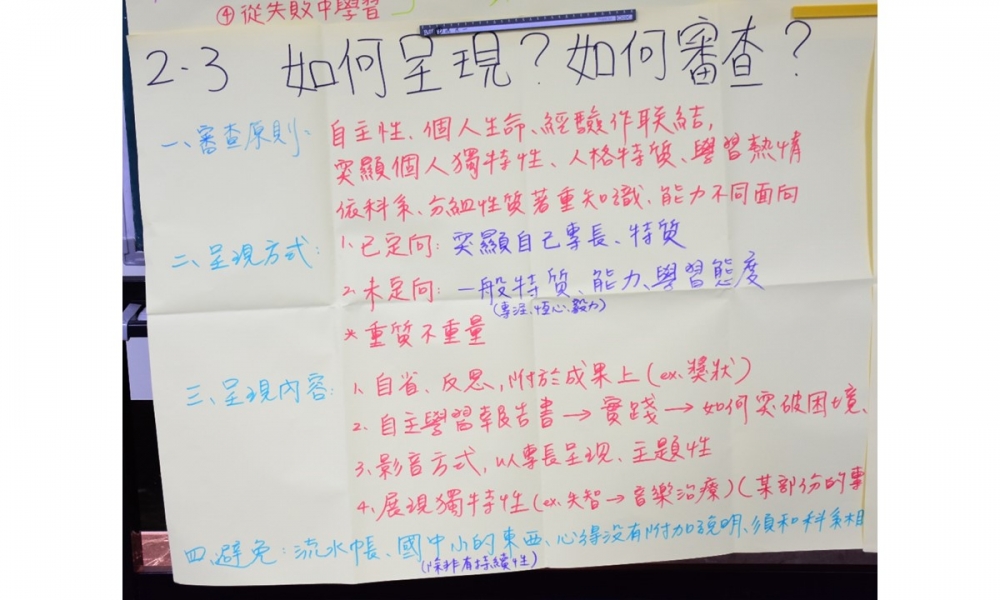 ④從失敗中學習
2.3 如何呈現？如何審查？
一、審查原則： 自主性、個人生命、經驗作联結，
突顯個人獨特性、人格特質、學習熱情
依科系、分組性質著重知識、能力不同面向
二、呈現方式： 1.已定向：突顯自己專長、特質
2.未定向：一般特質、能力、學習態度
(專注、恆心、毅力)
*重質不重量
三、呈現內容： 1.自省、反思，附於成果上(ex.獎狀)
2.自主學習報告書→實踐→如何突破困境、
3.影音方式，以專長呈現、主題性
4.展現獨特性(ex.失智→音樂治療)(某部份的事
四、避免：流水帳、國中小的東西、心得没有附加說明、須和科系相
(除非有持續性)